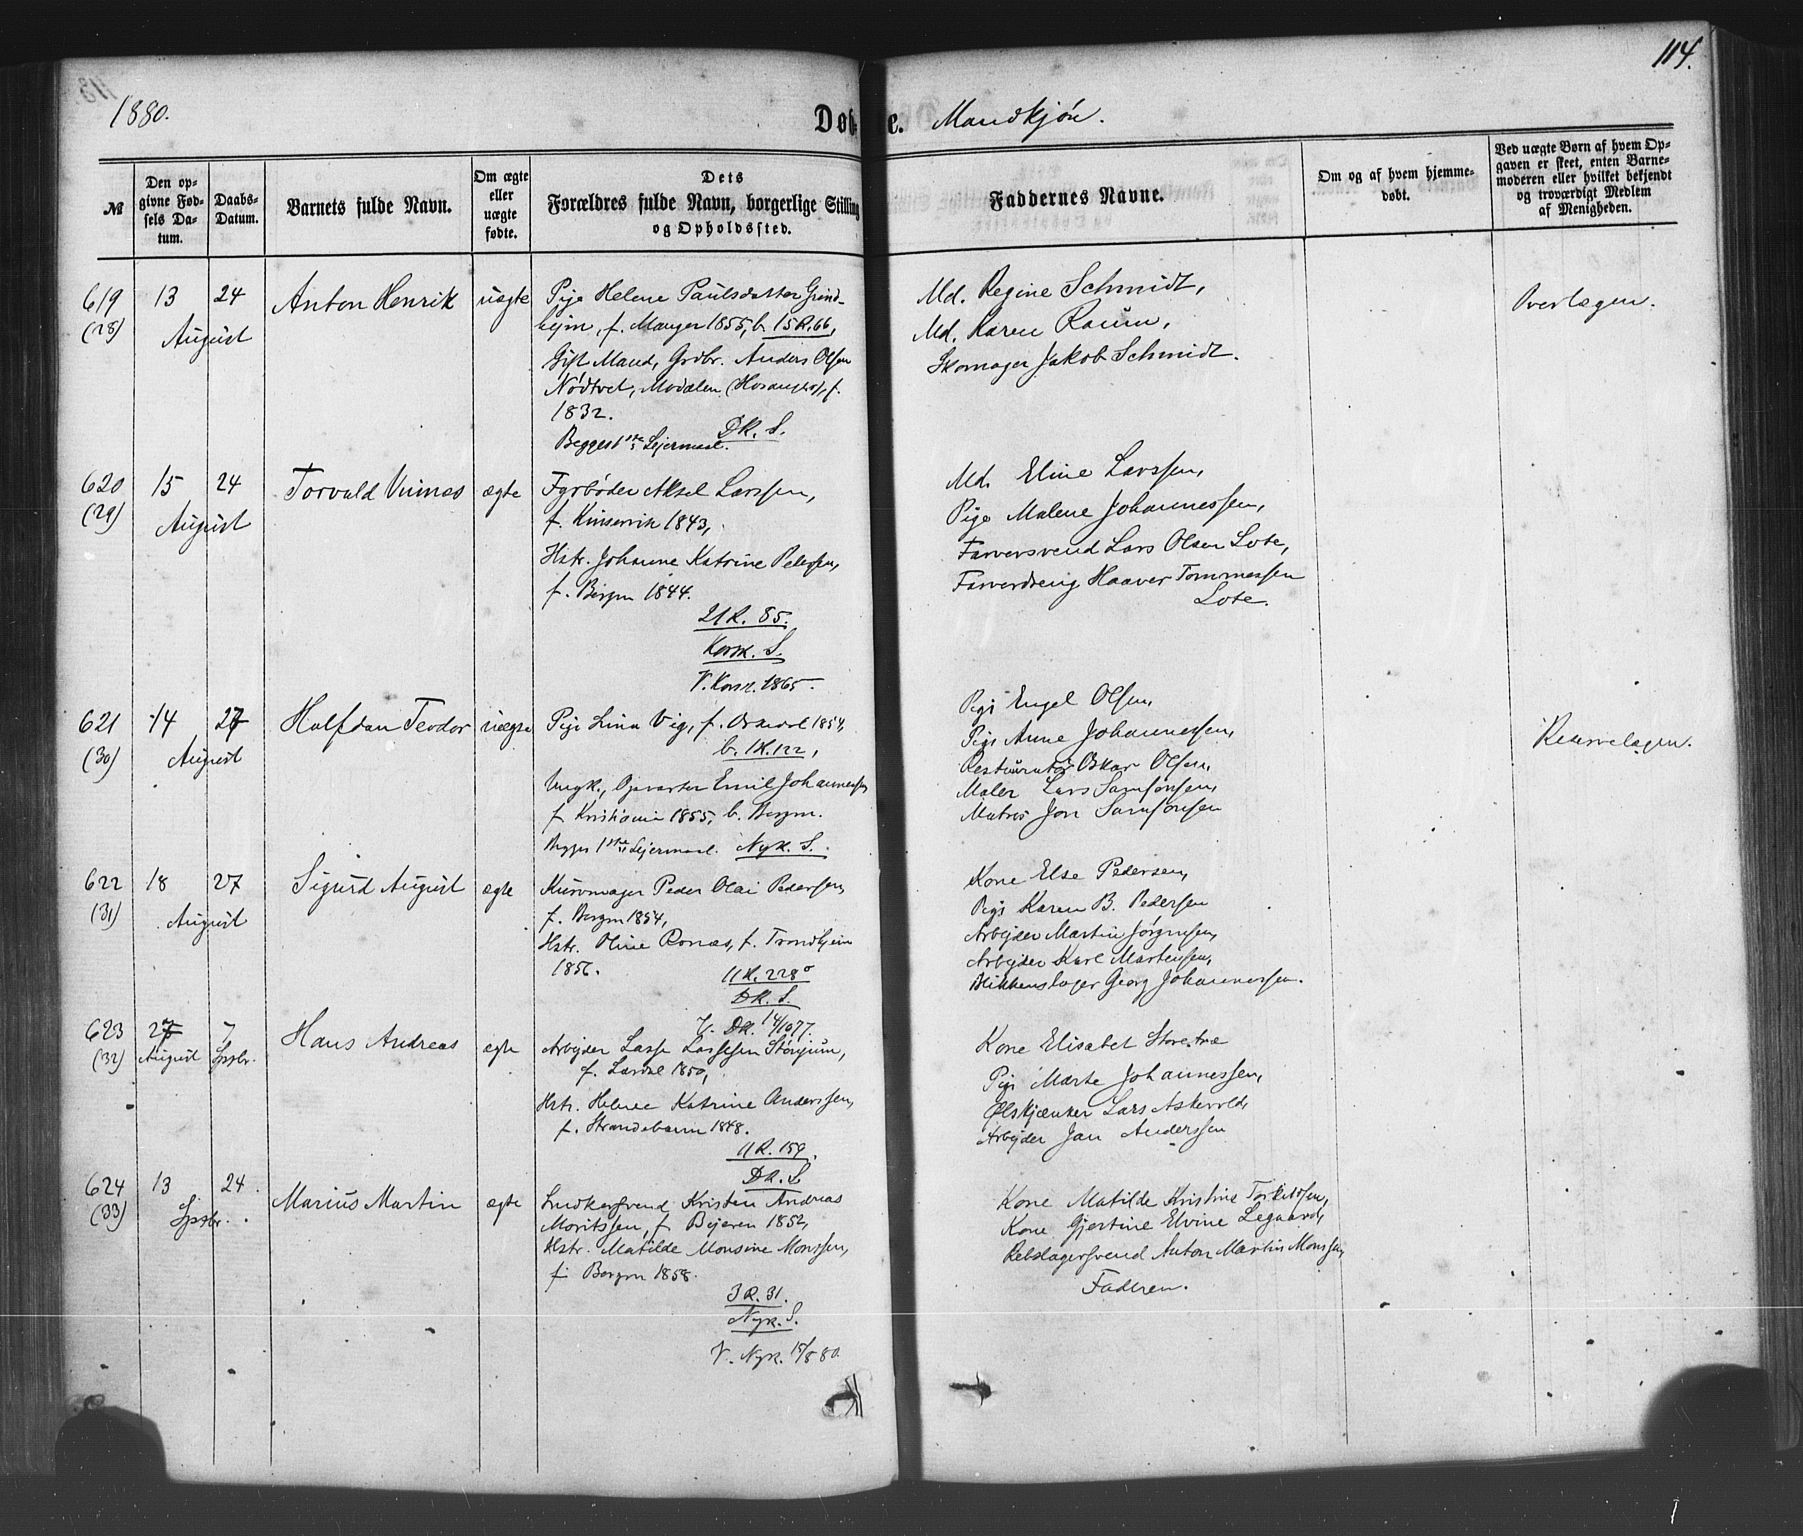 114.
1880.
Døbte. Mandkjön.
№
Den op-
givne Fød-
sels Da-
tum.
Daabs-
Datum.
Barnets fulde Navn.
Om ægte
eller
uægte
fødte.
Dets
Forældres fulde Navn, borgerlige Stilling
og Opholdssted.
Faddernes Navne.
Om og af hvem hjemme-
døbt.
Ved uægte Børn af hvem Op-
gaven er skeet, enten Barne-
moderen eller hvilket bekjendt
og troværdigt Medlem
af Menigheden.
619
(28)
13 24
August
Anton Henrik
uægte
Pige Helene Paulsdatter Grind-
heim, f. Manger 1855, b. 15 R. 66,
Gift Mand, Grdbr. Anders Olsen
Nödtvet, Modalen (Hosanger), f.
1832.
DK. S.
Begges 1ste Lejermaal.
Md. Regine Schmidt,
Md. Karen Raum,
Skomager Jakob Schmidt.
Overlægen.
620
(29)
15 24
August
Torvald Vimnes
ægte
Fyrbøder Aksel Larssen,
f. Kinservik 1843,
Hstr. Johanne Katrine Petersen,
f. Bergen 1844.
21 R. 85.
Korsk. S.
V. Korsk. 1865.
Md. Eline Larssen,
Pige Malene Johannessen,
Farversvend Lars Olsen Lote,
Farverdreng Haaver Tommessen
Lote.
621
(30)
14 27
August
Halfdan Teodor
uægte
Pige Lina Vig, f. 1854,
b. 1 R. 122,
Ungk., Opvarter Emil Johannessen
f. Kristiania 1855, b. Bergen.
Begges 1ste Lejermaal. Nyk. S.
Pige Engel Olsen,
Pige Anne Johannessen,
Restauratør Oskar Olsen,
Maler Lars Samsonsen,
Matros Jon Samsonsen
Reservelægen.
622
(31)
18 27
August
Sigurd August
ægte
Kurvmager Peder Olai Pedersen,
f. Bergen 1854,
Hstr. Oline Ronæs, f. Trondhjem
1856.
11 R. 228
DK. S.
V. DK. 14/10 77.
Kone Else Pedersen,
Pige Karen B. Pedersen
Arbejder Martin Jörgensen,
Arbejder Karl Martensen,
Blikkenslager Georg Johannessen.
623
(32)
27 7
August Spbr.
Hans Andreas
ægte
Arbejder Lasse Lassesen Störgjum,
f. Lærdal 1850,
Hstr. Helene Katrine Anderssen,
f. Strandebarm 1848.
11 R. 159.
DK. S.
Kone Elisabet Storetræ
Pige Marte Johannessen,
Ølskjænker Lars Askevold,
Arbejder Jan Anderssen
624
(33)
13 24.
Spbr.
Marius Martin
ægte
Snedkersvend Kristen Andreas
Moritssen, f. Bejeren 1852,
Hstr. Matilde Monsine Monssen,
f. Bergen 1858.
3 R. 31.
Nyk. S.
V. Nyk. 15/8 80.
Kone Matilde Kristine Torkildsen,
Kone Gjertine Elvine Legaard,
Rebslagersvend Anton Martin Monssen,
Faderen.